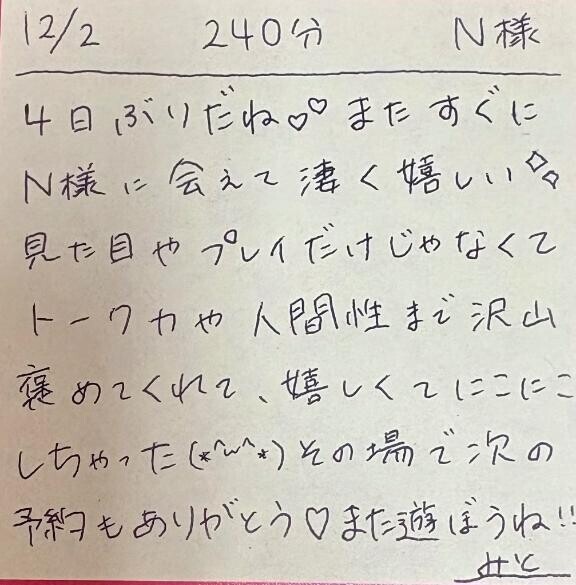 12/2 240分 N様
4日ぶりだね♡♡ また すぐに
N様に会えて凄く嬉しい✧✧
見た目やプレイだけじゃなくて
トーク力や人間性まで沢山
褒めてくれて、嬉しくてにこにこ
しちゃった(*^ω^*)その場で次の
予約もありがとう♡また遊ぼうね!!